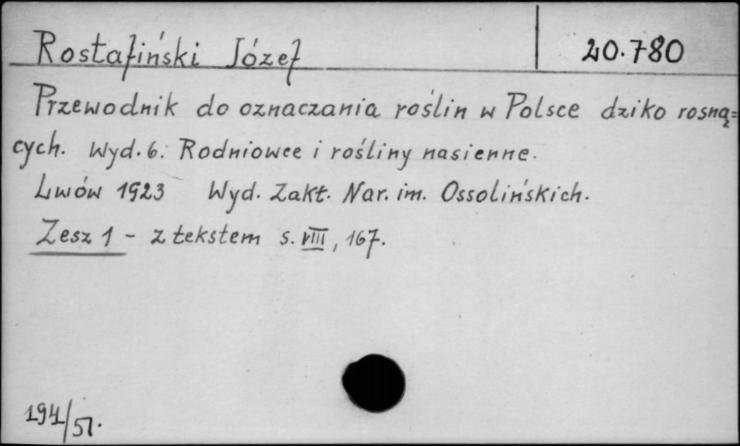 Rostafiński Józef 20.780
Przewodnik do oznaczania roślin w Polsce dziko rosną=
cych. Wyd. 6. Rodniowce i rośliny nasienne.
Lwów 1923 Wyd. Zakt. Nar. im. Ossolińskich.
Zesz 1 - z tekstem s. VIII, 167.
194/51.